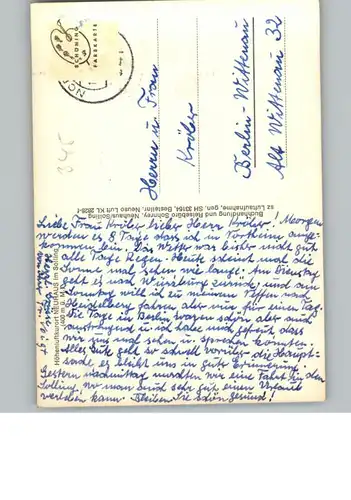 SCHÖNING
FARBKARTE
NO
345
Herrn u. Frau
Kröber
Berlin-Wittenau
Alt Wittenau 32
Buchhandlung und Reisebüro Sohnrey, Neuhaus/Solling
sz Luftaufnahme, gen. SH 33164, Bestellnr. Neuso Luft KL 2928-1
Höhenluftkurort NEUHAUS im Solling
Liebe Frau Kröber lieber Herr Kröber! Morgen
werden es 8 Tage dass ich in Northeim ange-
kommen bin. Das Wetter war bisher nicht gut
alle Tage Regen. Heute scheint mal die
Sonne mal sehen wie lange. Am Dienstag
geht es nach Würzburg zurück, und am
Sonntag will ich zu meinem Neffen nach
Heidelberg fahren aber nur für einen Tag.
Die Tage in Berlin waren schön aber auch
anstrengend u. ich habe mich gefreut dass
wir uns mal sehen u. sprechen konnten.
Alles Gute geht so schnell vorüber die Haupt-
sache es bleibt uns in guter Erinnerung.
Gestern nachmittag machten wir eine Fahrt in den
Solling, wo man auch sehr gut einen Urlaub
verleben kann. Bleiben Sie schön gesund!